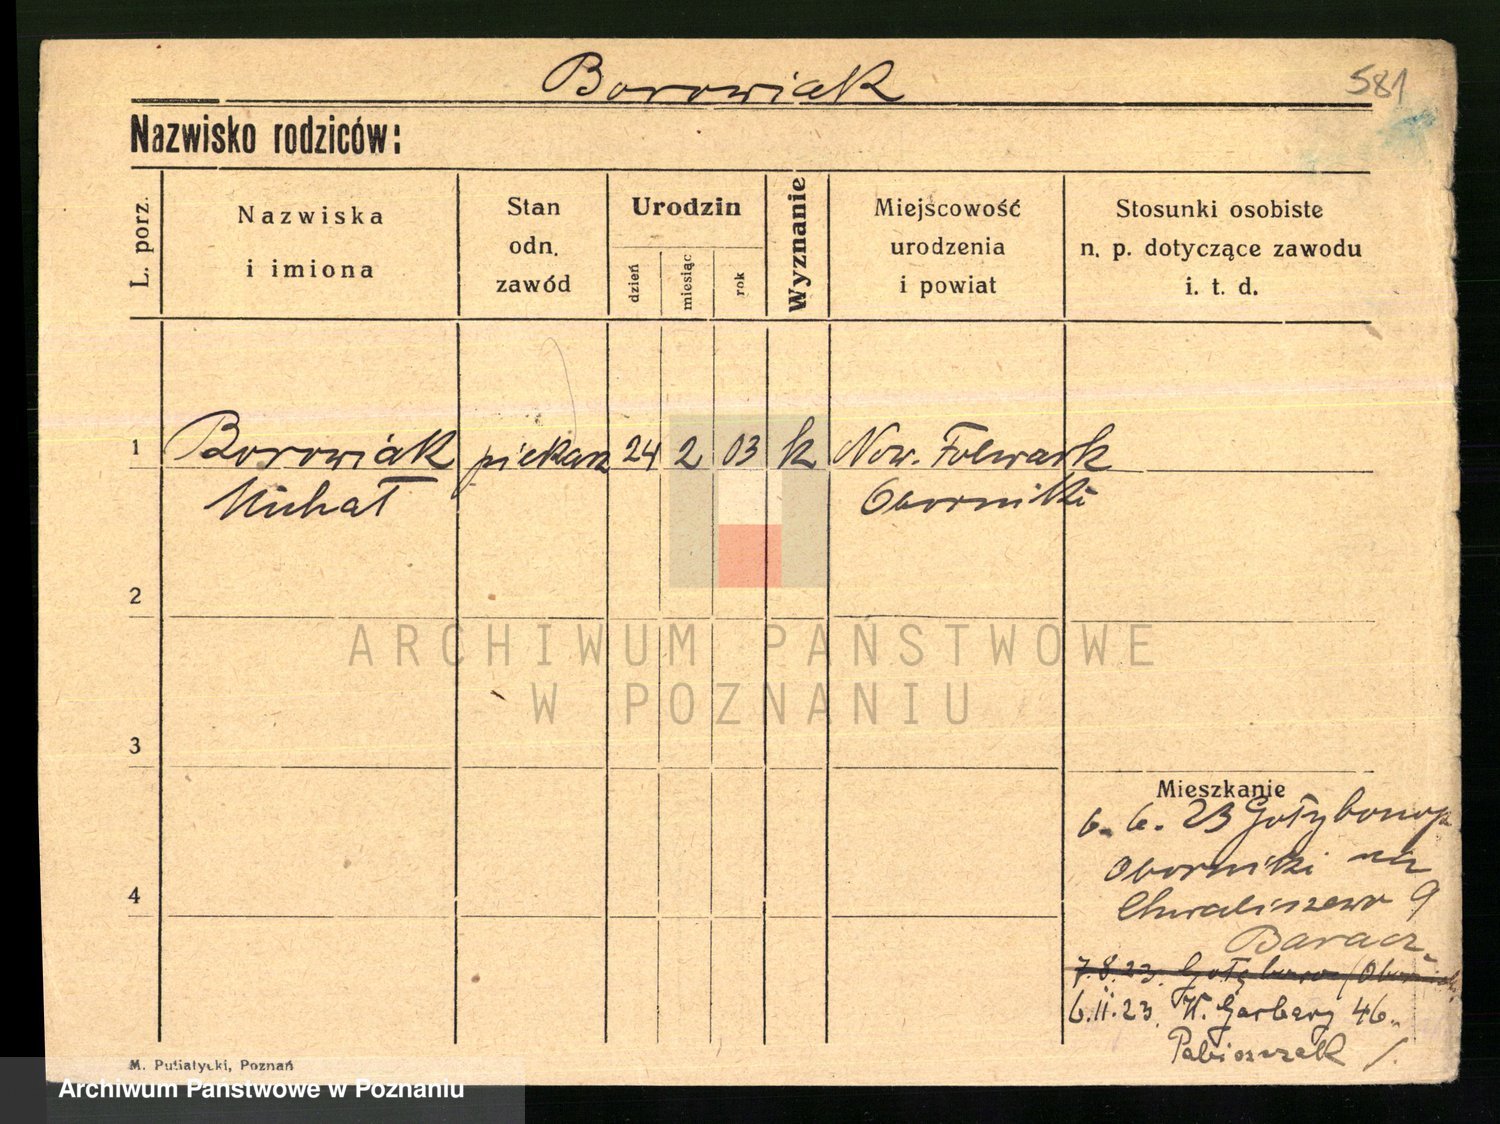 Borowiak
581
Nazwisko rodziców:
L. porz.
Nazwiska
i imiona
Stan
odn.
zawód
Urodzin
dzień
miesiąc
rok
Wyznanie
Miejscowość
urodzenia
i powiat
Stosunki osobiste
n. p. dotyczące zawodu
i. t. d.
1 Borowiak piekarz 24 2 03 k Now. Folwark
Michał Oborniki
2
ARCHIWUM PAŃSTWOWE
W POZNANIU
3
Mieszkanie
6. 6. 23
Oborniki na
Chwaliszewo 9
4
Baracz.
7.8.23.
6.11.23. W. Garbary 46.
M. Putiatycki, Poznań
Archiwum Państwowe w Poznaniu